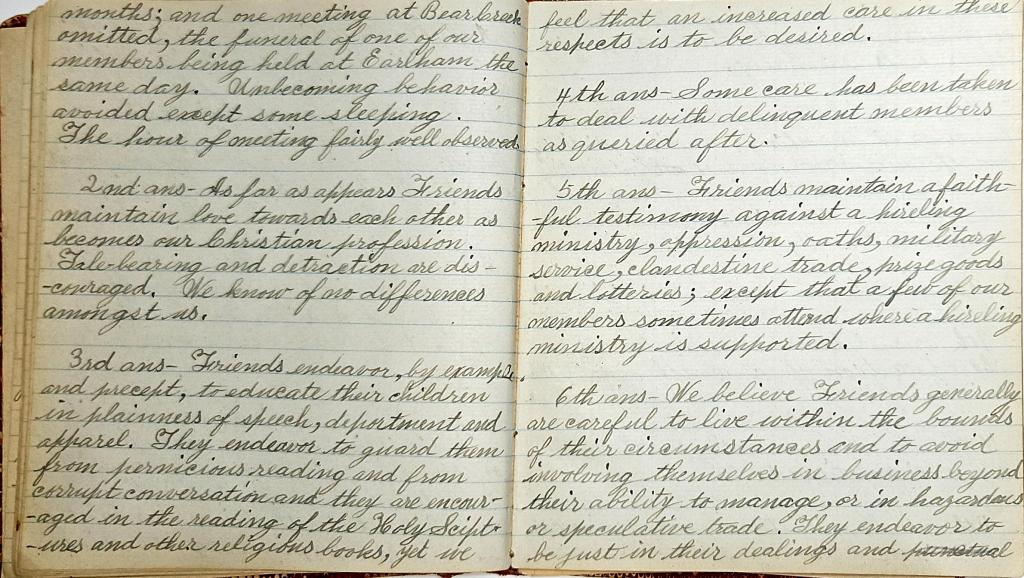 months; and one meeting at Bear Creek
omitted, the funeral of one of our
members being held at Earlham the
same day. Unbecoming behavior
avoided except some sleeping.
The hour of meeting fairly well observed
2nd ans- As far as appears Friends
maintain love towards each other as
becomes our Christian profession.
Tale-bearing and detraction are dis-
-couraged. We know of no differences
amongst us.
3rd ans- Friends endeavor, by example
and precept, to educate their children
in plainness of speech, deportment and
apparel. They endeavor to guard them
from pernicious reading and from
corrupt conversation and they are encour-
-aged in the reading of the Holy Script-
-ures and other religious books, yet we
feel that an increased care in these
respects is to be desired.
4th ans- Some care has been taken
to deal with delinquent members
as queried after.
5th ans- Friends maintain a faith-
-ful testimony against a hireling
ministry, oppression, oaths, military
service, clandestine trade, prize goods
and lotteries; except that a few of our
members sometimes attend where a hireling
ministry is supported.
6th ans- We believe Friends generally
are careful to live within the bounds
of their circumstances and to avoid
involving themselves in business beyond
their ability to manage, or in hazardous
or speculative trade. They endeavor to
be just in their dealings and punctual